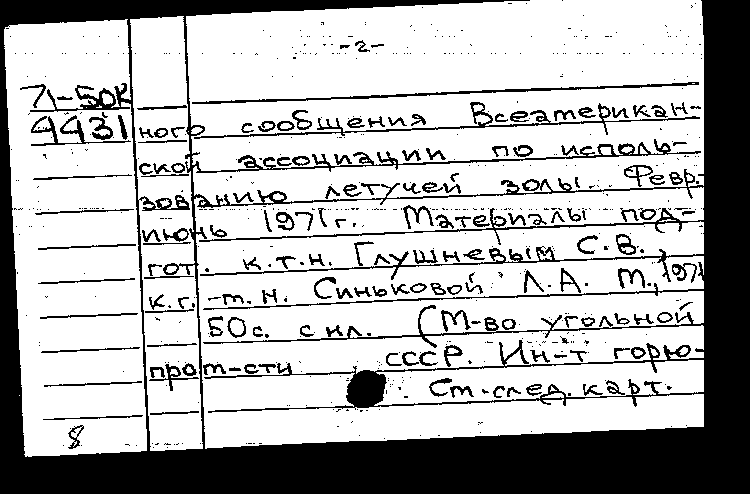 -2-
71-50К
4431
ного сообщения Всеамерикан-
ской ассоциации по исполь-
зованию летучей золы. Февр.-
июнь 1971г. Материалы под-
гот. к.т.н. Глушневым С.В.,
к.г.-м.н. Синьковой Л.А. М., 1971
50с. с ил. (М-во угольной
пром-сти СССР. Ин-т горю-
См. след. карт.
8